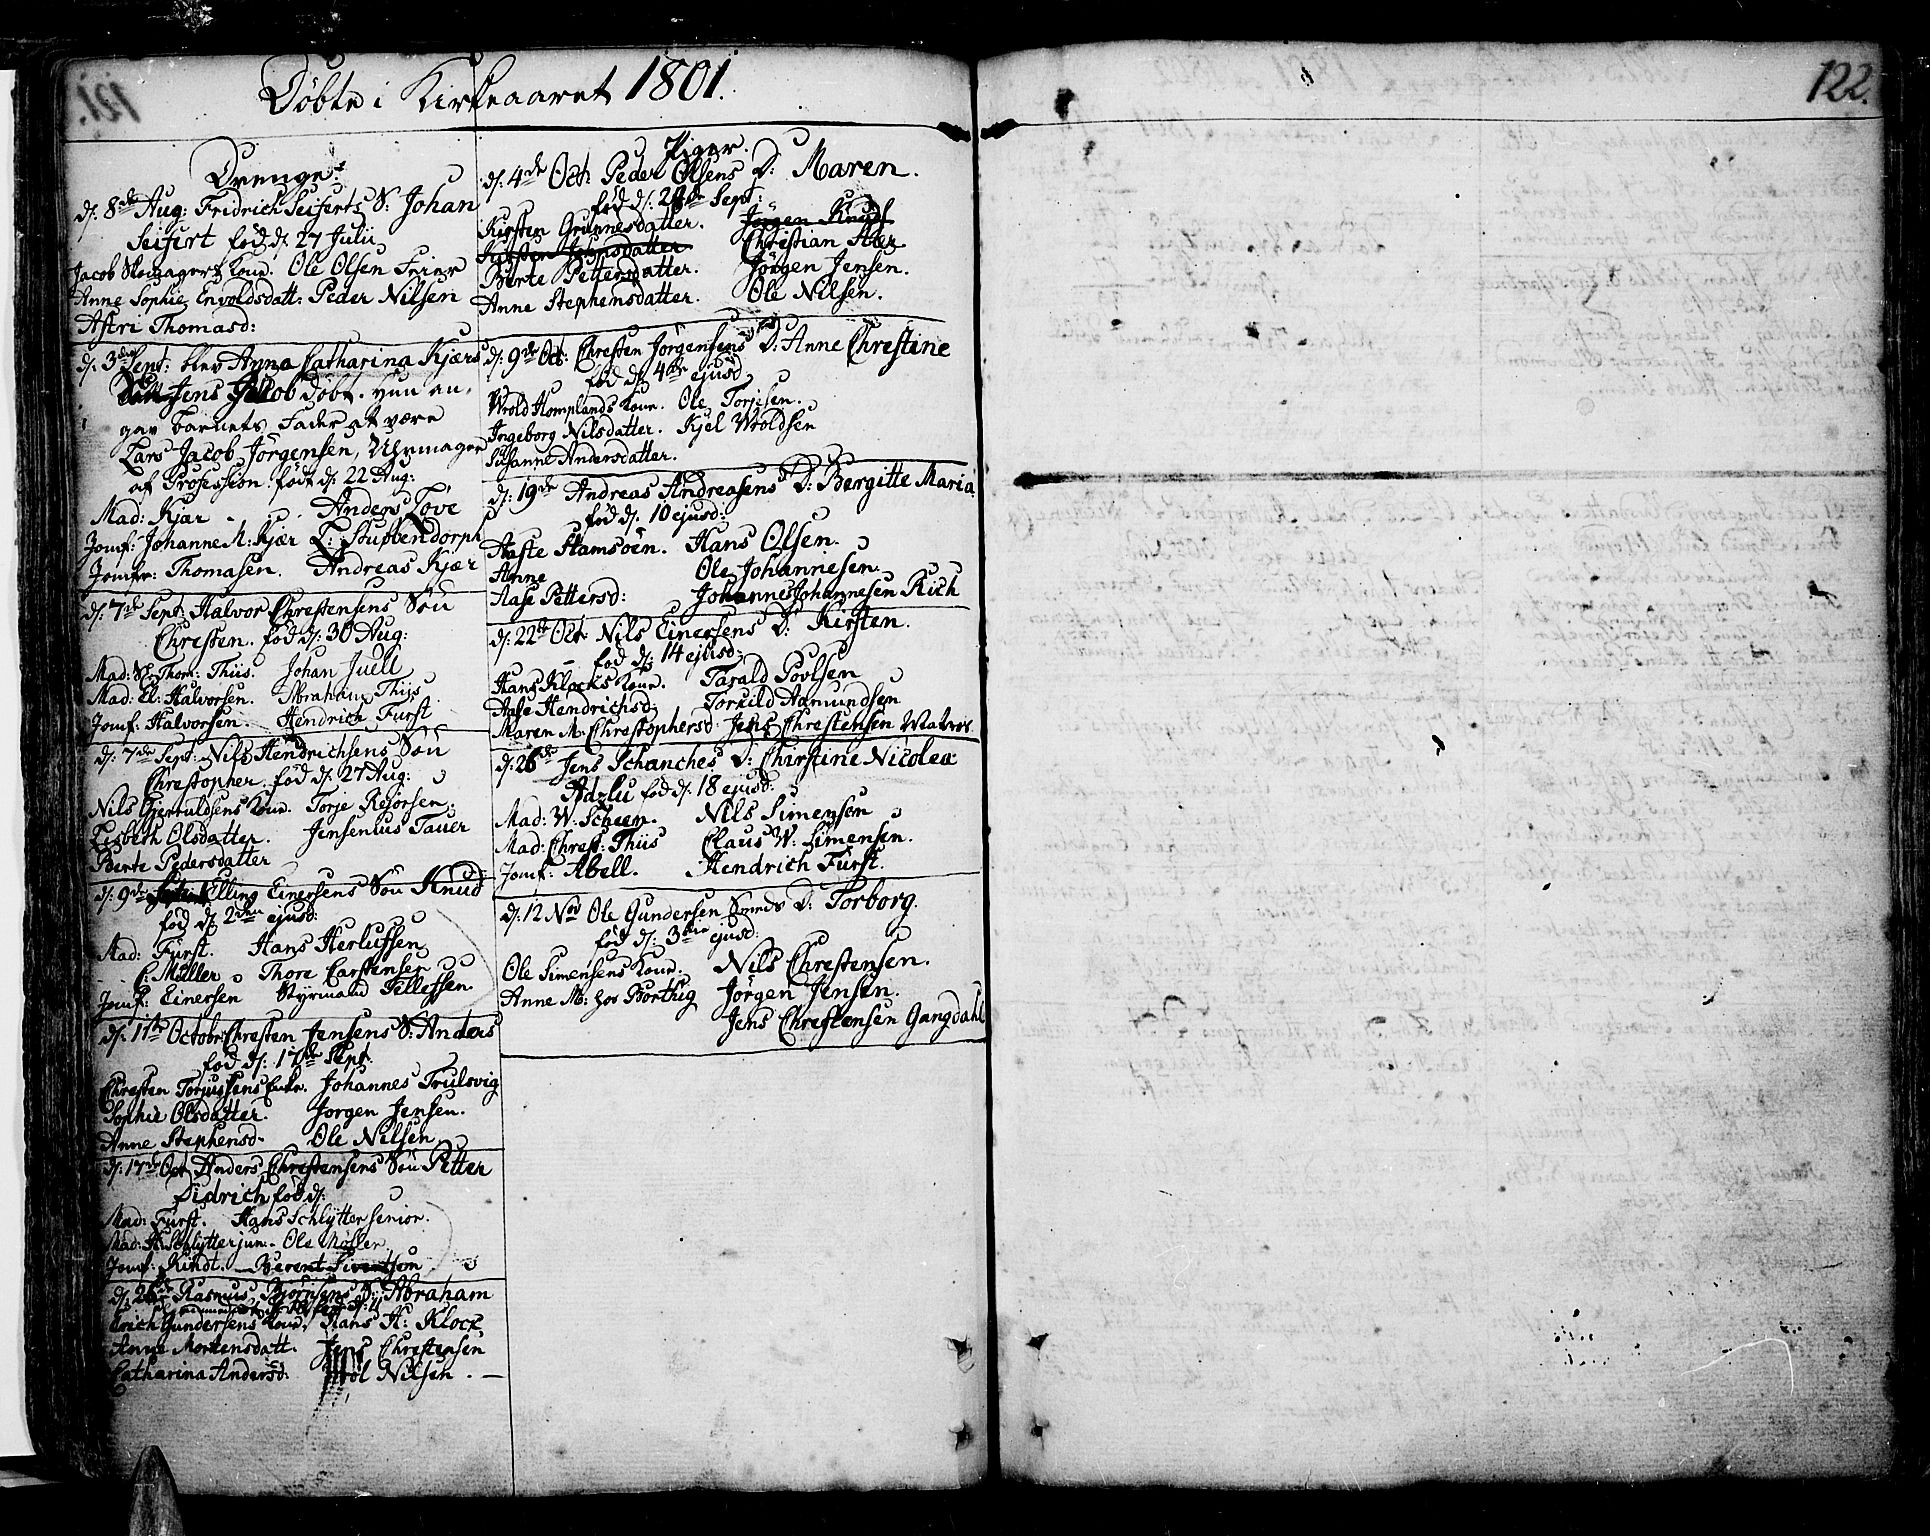 Döbte i Kirkeaaret 1801.
122.
Drenge:
d: 8de Aug: Fridrich Seiferts S: Johan
Seifert föd d: 27 Julii
Jacob Skomagers Kone. Ole Olsen Feier
Anne Sophie Envoldsdatt: Peder Nilsen
Astri Thomasd:
d: 3die Sept: blev Anna Catharina Kjærs
Sön Jens Jacob döbt. Hun an,
gav Barnets Fader at være
Lars Jacob Jörgensen, Uhrmager
af Profession. födt d: 22 Aug:
Mad: Kjær Anders Töve
Jomf: Johanne M: Kjær L: Stubbendorph
Jomfr: Thomasen. Andreas Kjær
d: 7de Sept: Halvor Chrestensens Sön
Chresten. föd d: 30 Aug:
Mad: Thom: Thiis. Johan Juell
Mad: El: Halvorsen. Abraham Thiis
Jomf: Halvorsen. Hendrich Furst
d: 7de Sept: Nils Hendrichsens Sön
Chrestopher. föd d: 27 Aug:
Nils Gjeruldsens Kone. Torje Rejorsen.
Lisbeth Olsdatter. Jensenius Tauer
Berte Pedersdatter
d: 9de Elling Einersens Sön Knud
föd d: 2den ejusd:
Mad: Fürst. Hans Herlufsen
C: Müller Thore Carstensen
Jomf: Einersen Styrmand Tellefsen
d: 11te Octobr Chresten Jensens S: Anders
föd d: 17de Sept:
Chresten Torjussens Enke. Johannes Trulsvig
Sophie Olsdatter. Jorgen Jensen.
Anne Stephensd. Ole Nilsen
d: 17de Oct Anders Chrestensens Sön Petter
Didrich föd d:
Mad: Fürst. Hans Schlytter senior.
Mad: H. Schlytter jun. Ole Möller
Jomf: Kindt. Berent Sivertson
d: 26de Rasmus Björnsens S: Abraham
Erich Gundersens Kone. Hans H: Klock
Anne Mortensdatt. Jens Chrestensen
Catharina Andersd: Nilsen.
Piger.
d: 4de Oct: Peder Olsens D: Maren.
föd d: Sept:
Kirsten Grunnesdatter. Jörgen Knuds
Kirsten Johnsdatter Christian Aler
Berte Pettersdatter. Jörgen Jensen.
Anne Stephensdatter. Ole Nilsen.
d: 9de Oct: Chresten Jörgensens D: Anne Chrestine
föd d: 4de ejusd
Wrold Homplands Kone. Ole Torjesen.
Ingeborg Nilsdatter. Kjel Wroldsen
Susanne Andersdatter.
d: 19de Andreas Andreasens D: Bergitte Maria
föd d: 10 ejusd:
Aaste Stamsöen. Hans Olsen.
Anne Ole Johannesen
Aase Pettersd: Johannes Johannesen Rich
d: 22de Oct: Nils Einersens D: Kirsten.
föd d: 14 ejusd:
Hans Klocks Kone. Tarald Povlsen
Aase Hendrichsd: Torkild Aamundsen
Maren M. Chrestophersd: Jens Chrestensen
d: 26de Jens Schanches D: Christine Nicolea
Adzlu föd d: 18 ejusd:
Mad: W. Scheen. Nils Simenson
Mad: Chrest: Thiis Claus W: Simensen.
Jomf: Abell. Hendrich Fürst.
d: 12 Nov Ole Gundersen D: Torborg.
föd d: 3die ejusd:
Ole Simensens Kone. Nils Chrestensen.
Anne M: hos Borthig Jörgen Jensen.
Jens Chrestensen Gangdahl